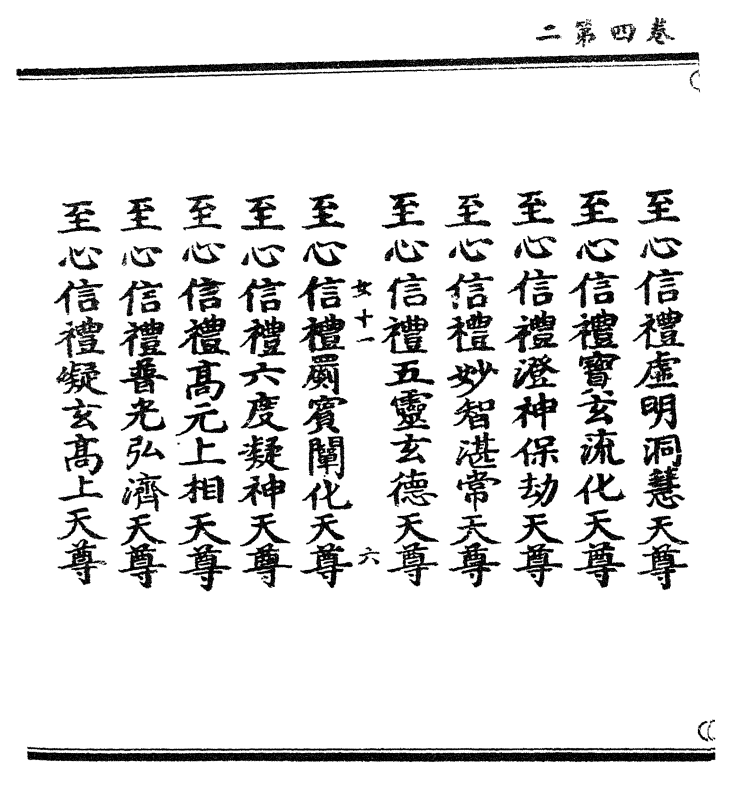 卷四第二
至心信禮虛明洞慧天尊
至心信禮寶玄流化天尊
至心信禮澄神保劫天尊
至心信禮妙智湛常天尊
至心信禮五靈玄德天尊
女十一 六
至心信禮罽賓闡化天尊
至心信禮六度凝神天尊
至心信禮高元上相天尊
至心信禮普光弘濟天尊
至心信禮凝玄高上天尊